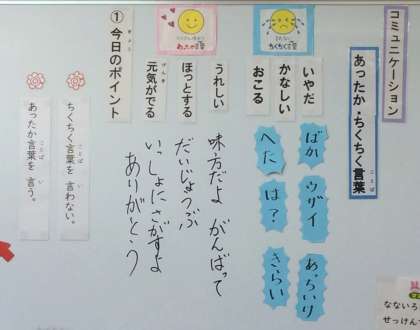 コミュニケーション
あったか・ちくちく言葉
ことば
ちくちく言葉
いやだ
かなしい
おこる
ばか
ウザイ
あっちいけ
へた
は？
きらい
あったか言葉
うれしい
ほっとする
元気がでる
げんき
味方だよ がんばって
だいじょうぶ
いっしょにさがすよ
ありがとう
①今日のポイント
きょう
ちくちく言葉を 言わない。
ことば
い
あったか言葉を 言う。
ことば
い
なないろ
せっけん